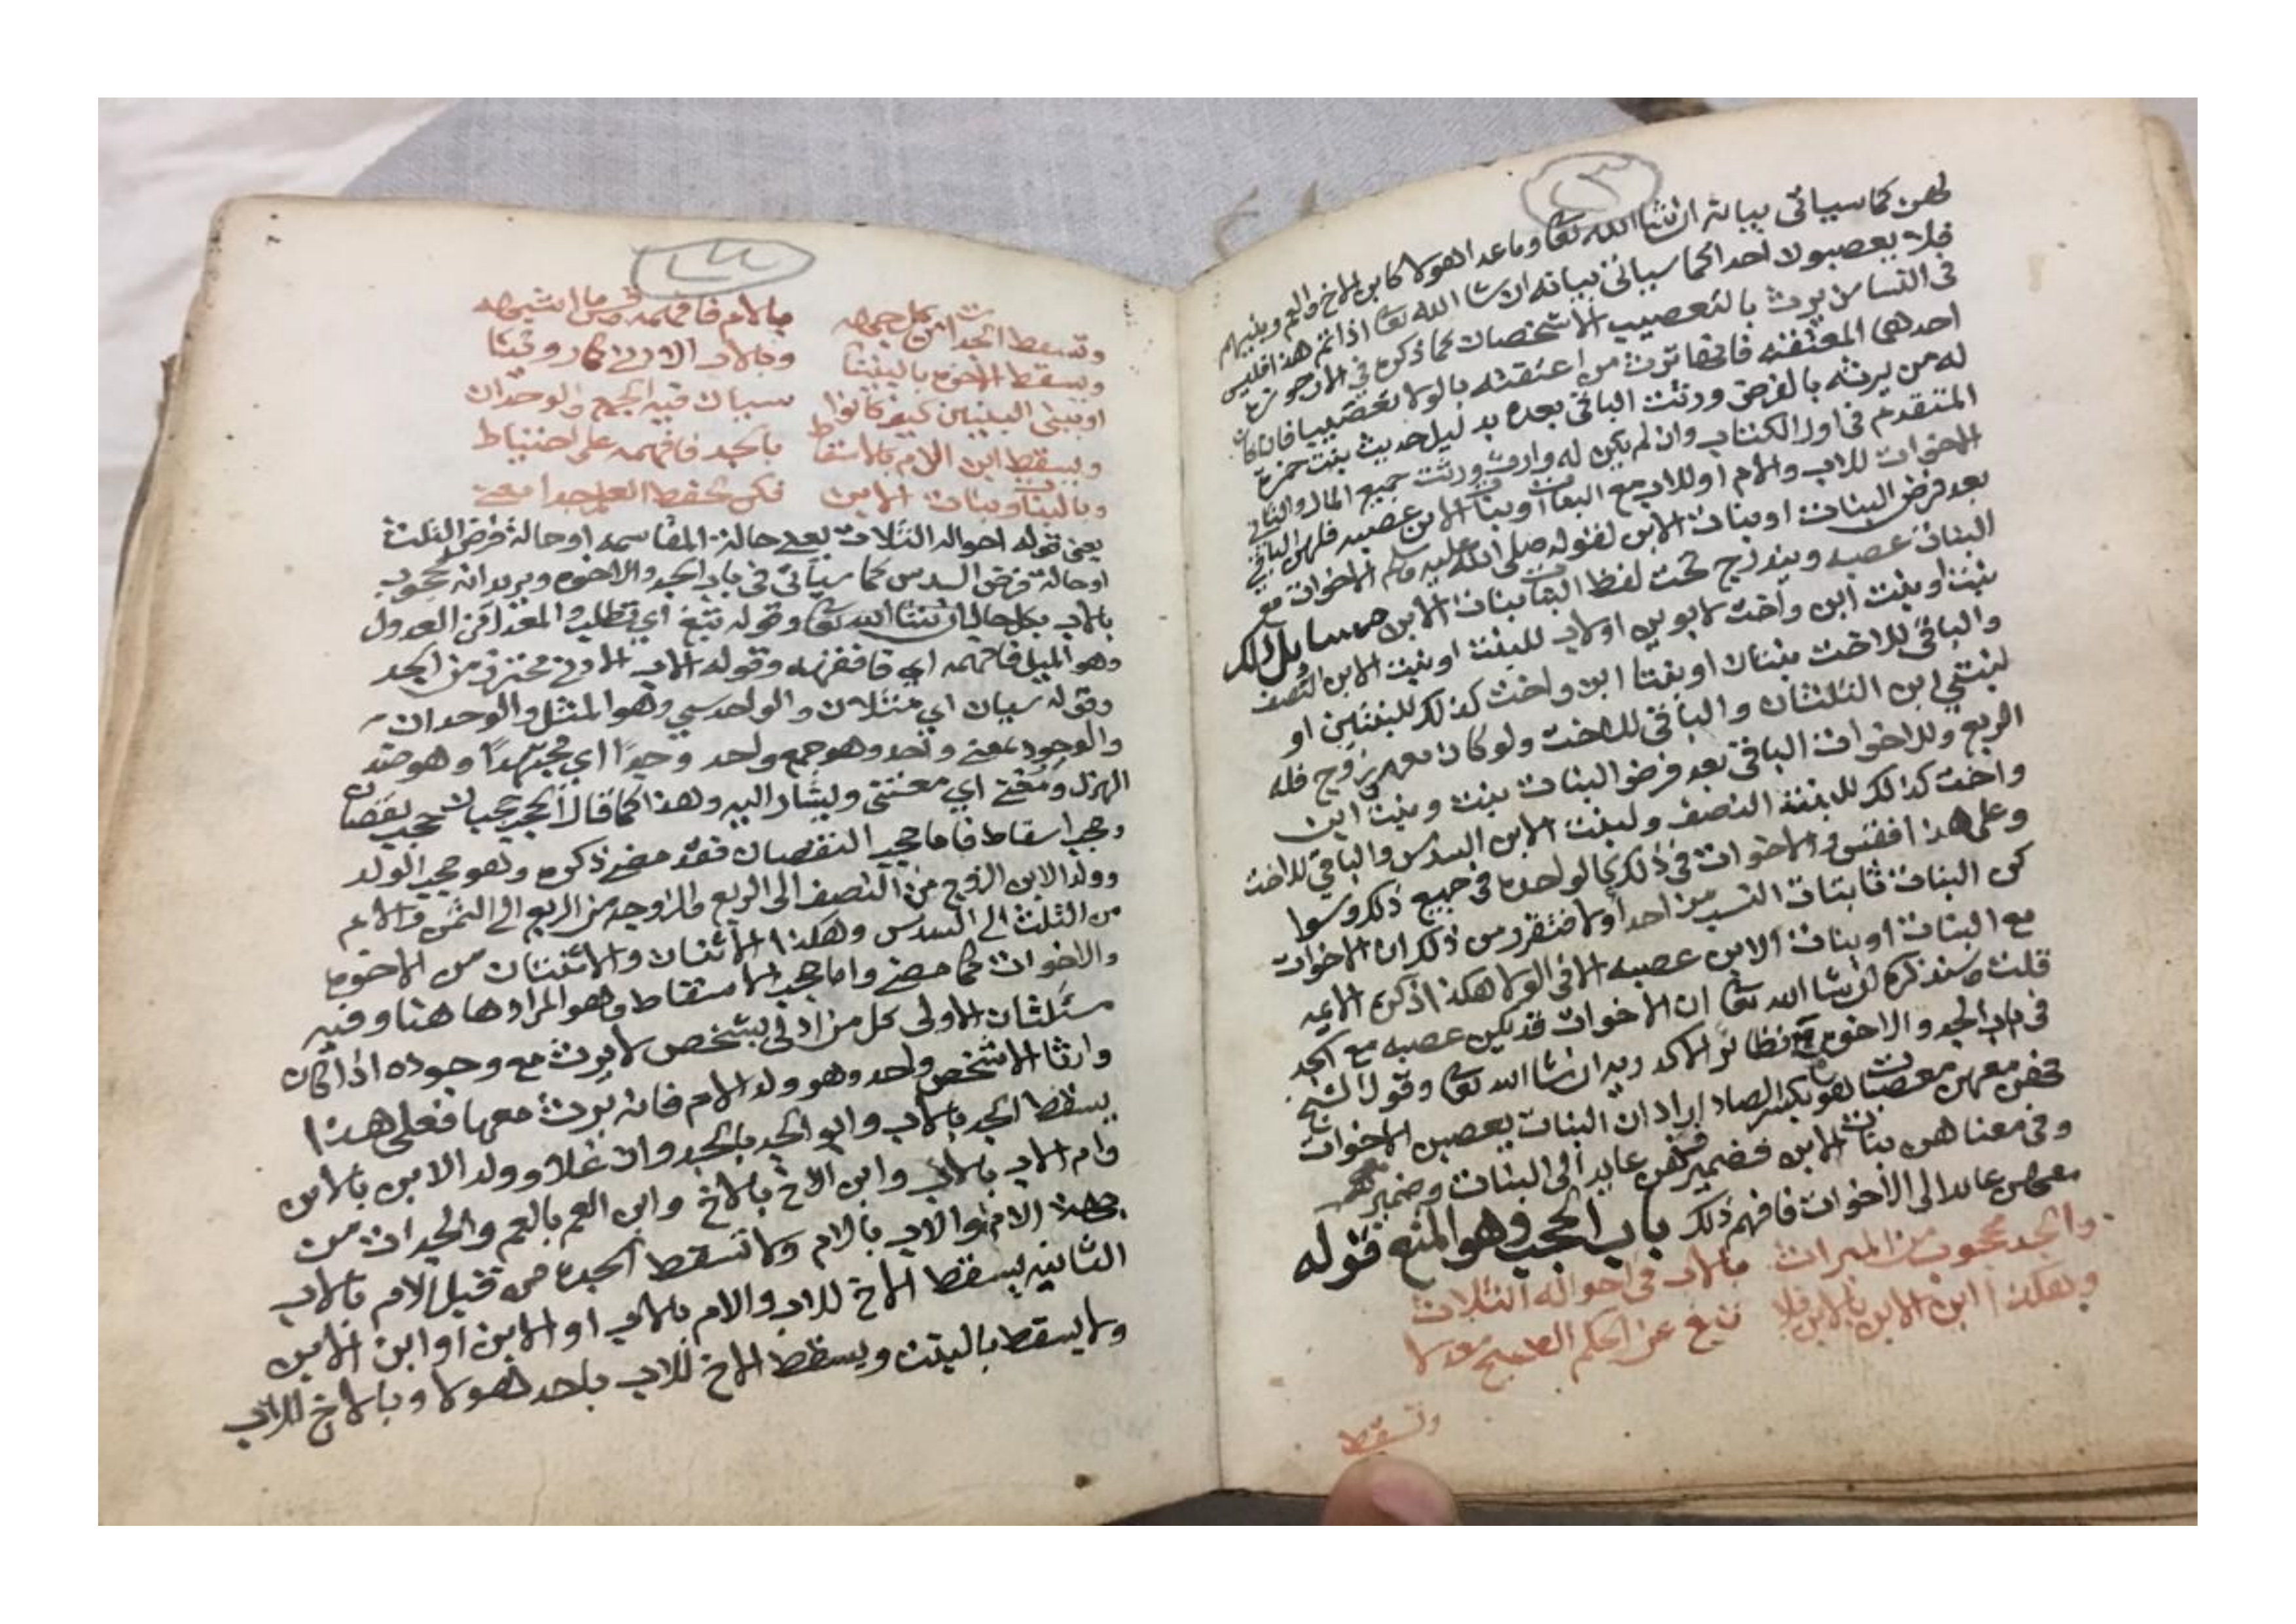 لهن كما سياتي بيانه ان شا الله تعا وما عدا هولا كابن الاخ والعم وبنيهم
فلا يعصبون احدا كما سياتي بيانه ان شا الله تعا اذا تم هذا فليس
في النسا من يرث بالتعصيب الا شخصان كما ذكره في الارجوزة
احدهما المعتقه فانها ترث من اعتقته بالولا تعصيبا فان كان
له من يرثه بالفرض ورثت الباقي بعده بدليل حديث بنت حمزة
المتقدم في اول الكتاب وان لم يكن له وارث ورثت جميع المال والثاني
الاخوات للاب والام او للاب مع البنات او بنات الابن عصبه فلهن الباقي
بعد فرض البنات او بنات الابن لقوله صلى الله عليه وسلم الاخوات مع
البنات عصبه ويندرج تحت لفظ البنات بنات الابن مسايل ذلك
بنت او بنت ابن واخت لابوين او لاب للبنت او بنت الابن النصف
والباقي للاخت بنتان او بنتا ابن واخت كذلك للبنتين او
لبنتي ابن الثلثان والباقي للاخت ولو كان معهم زوج فله
الربع وللاخوات الباقي بعد فرض البنات بنت وبنت ابن
واخت كذلك للبنت النصف ولبنت الابن السدس والباقي للاخت
وعلى هذا فقس والاخوات في ذلك كالواحدة في جميع ذلك وسوا
كن البنات ثابتات النسب من احد اولا فتقرر من ذلك ان الاخوات
مع البنات او بنات الابن عصبه الا في الولا هكذا ذكره الايمه
قلت وسنذكره ان شا الله تعا ان الاخوات قد يكن عصبه مع الجد
في باب الجد والاخوة نظائر الاكدريه ان شا الله تعا وقول الشيخ
فهن معهن معصبات هو بكسر الصاد اراد ان البنات يعصبن الاخوات
وفي معناهن بنات الابن فضمير فهن عايد الى البنات وضمير
معهن عايد الى الاخوات فافهم ذلك باب الحجب وهو المنع قوله
والجد محجوب من الميراث بالاب في احواله الثلاث
وهكذا ابن الابن بالابن فلا تبغ عن الحكم الصحيح معدلا
وتسقط
وتسقط الجدات من كل جهه بالام فافهمه وقس ما اشبهه
ويسقط الاخوة بالبنينا وبالاب الادنى كما روينا
او ببني البنين كيف كانوا سيان فيه الجمع والوحدان
ويسقط ابن الام بالاسقاط بالجد فافهمه على احتياط
وبالبنات وبنات الابن فكن لحفظ العلم جدا معني
يعني قوله احواله الثلاث يعني حالة المقاسمه او حالة فرض الثلث
او حالة فرض السدس كما سياتي في باب الجد والاخوه ويريد انه محجوب
بالاب بكل حال ان شا الله تعا وقوله تبغ اي تطلب المعدل من العدول
وهو الميل فافهمه اي وقوله الاب الادنى محترز من الجد
وقوله سيان اي مثلان والواحد سي وهو المثل والوحدان
والوجود بمعنى واحد وهو جمع واحد وجدا اي مجتهدا وهو ضد
الهزل ومعني اي معتني ويشار اليه وهذا كما قال الحجب حجبان حجب نقصان
وحجب اسقاط فاما حجب النقصان فقد مضى ذكره وهو حجب الولد
وولد الابن الزوج من النصف الى الربع والزوجه من الربع الى الثمن والام
من الثلث الى السدس وهكذا الاثنان والاثنتان من الاخوه
والاخوات كما مضى واما حجب الاسقاط وهو المراد هاهنا وفيه
مسئلتان الاولى كل من ادلى بشخص لا يرث مع وجوده اذا كان
وارثا الا شخص واحد وهو ولد الام فانه يرث معها فعلى هذا
يسقط الجد بالاب وابو الجد بالجد وان علا وولد الابن بالابن
وام الاب بالاب وابن الاخ بالاخ وابن العم بالعم والجدات من
جهة الام او الاب بالام ولا تسقط الجدة من قبل الام بالاب
الثانيه يسقط الاخ للاب والام بالاب او الابن او ابن الابن
ولا يسقط بالبنت ويسقط الاخ للاب باحد هولا وبالاخ للاب